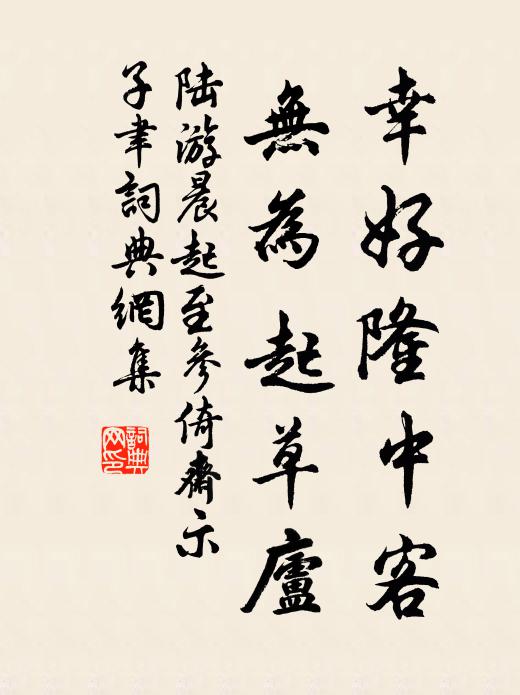 幸好隆中客
無為起草廬
陸游晨起至參倚齋示
子聿詞典網集
詞典网印